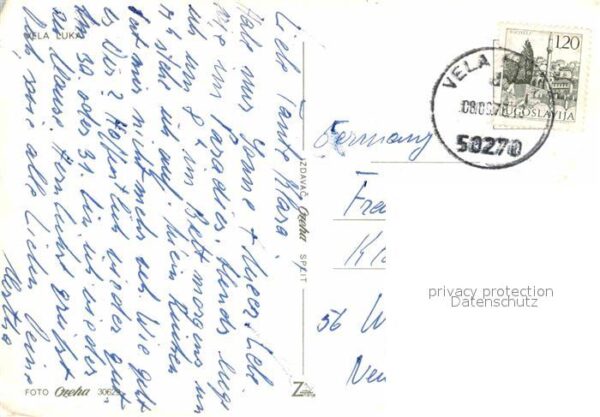 VELA LUKA
Liebe Tante Klara.
Habe nur Sonne + Meer. Lebe
wie im Paradies. Abends liege
ich um 8 h im Bett morgens um
4 stehe ich auf. Mein Rücken
tut mir nicht mehr weh. Wie geht
es Dir? Hoffentlich wieder gut.
Am 30. oder 31. bin ich wieder
zu Hause. Herzlichst grüßt
Dich sowie alle Lieben Deine
Martha
IZDAVAČ Ozeha SPLIT
FOTO Ozeha
VELA
08.06.7
50270
1,20
JUGOSLAVIJA
Germany
Fra
Kl
56 W
Neu
privacy protection
Datenschutz